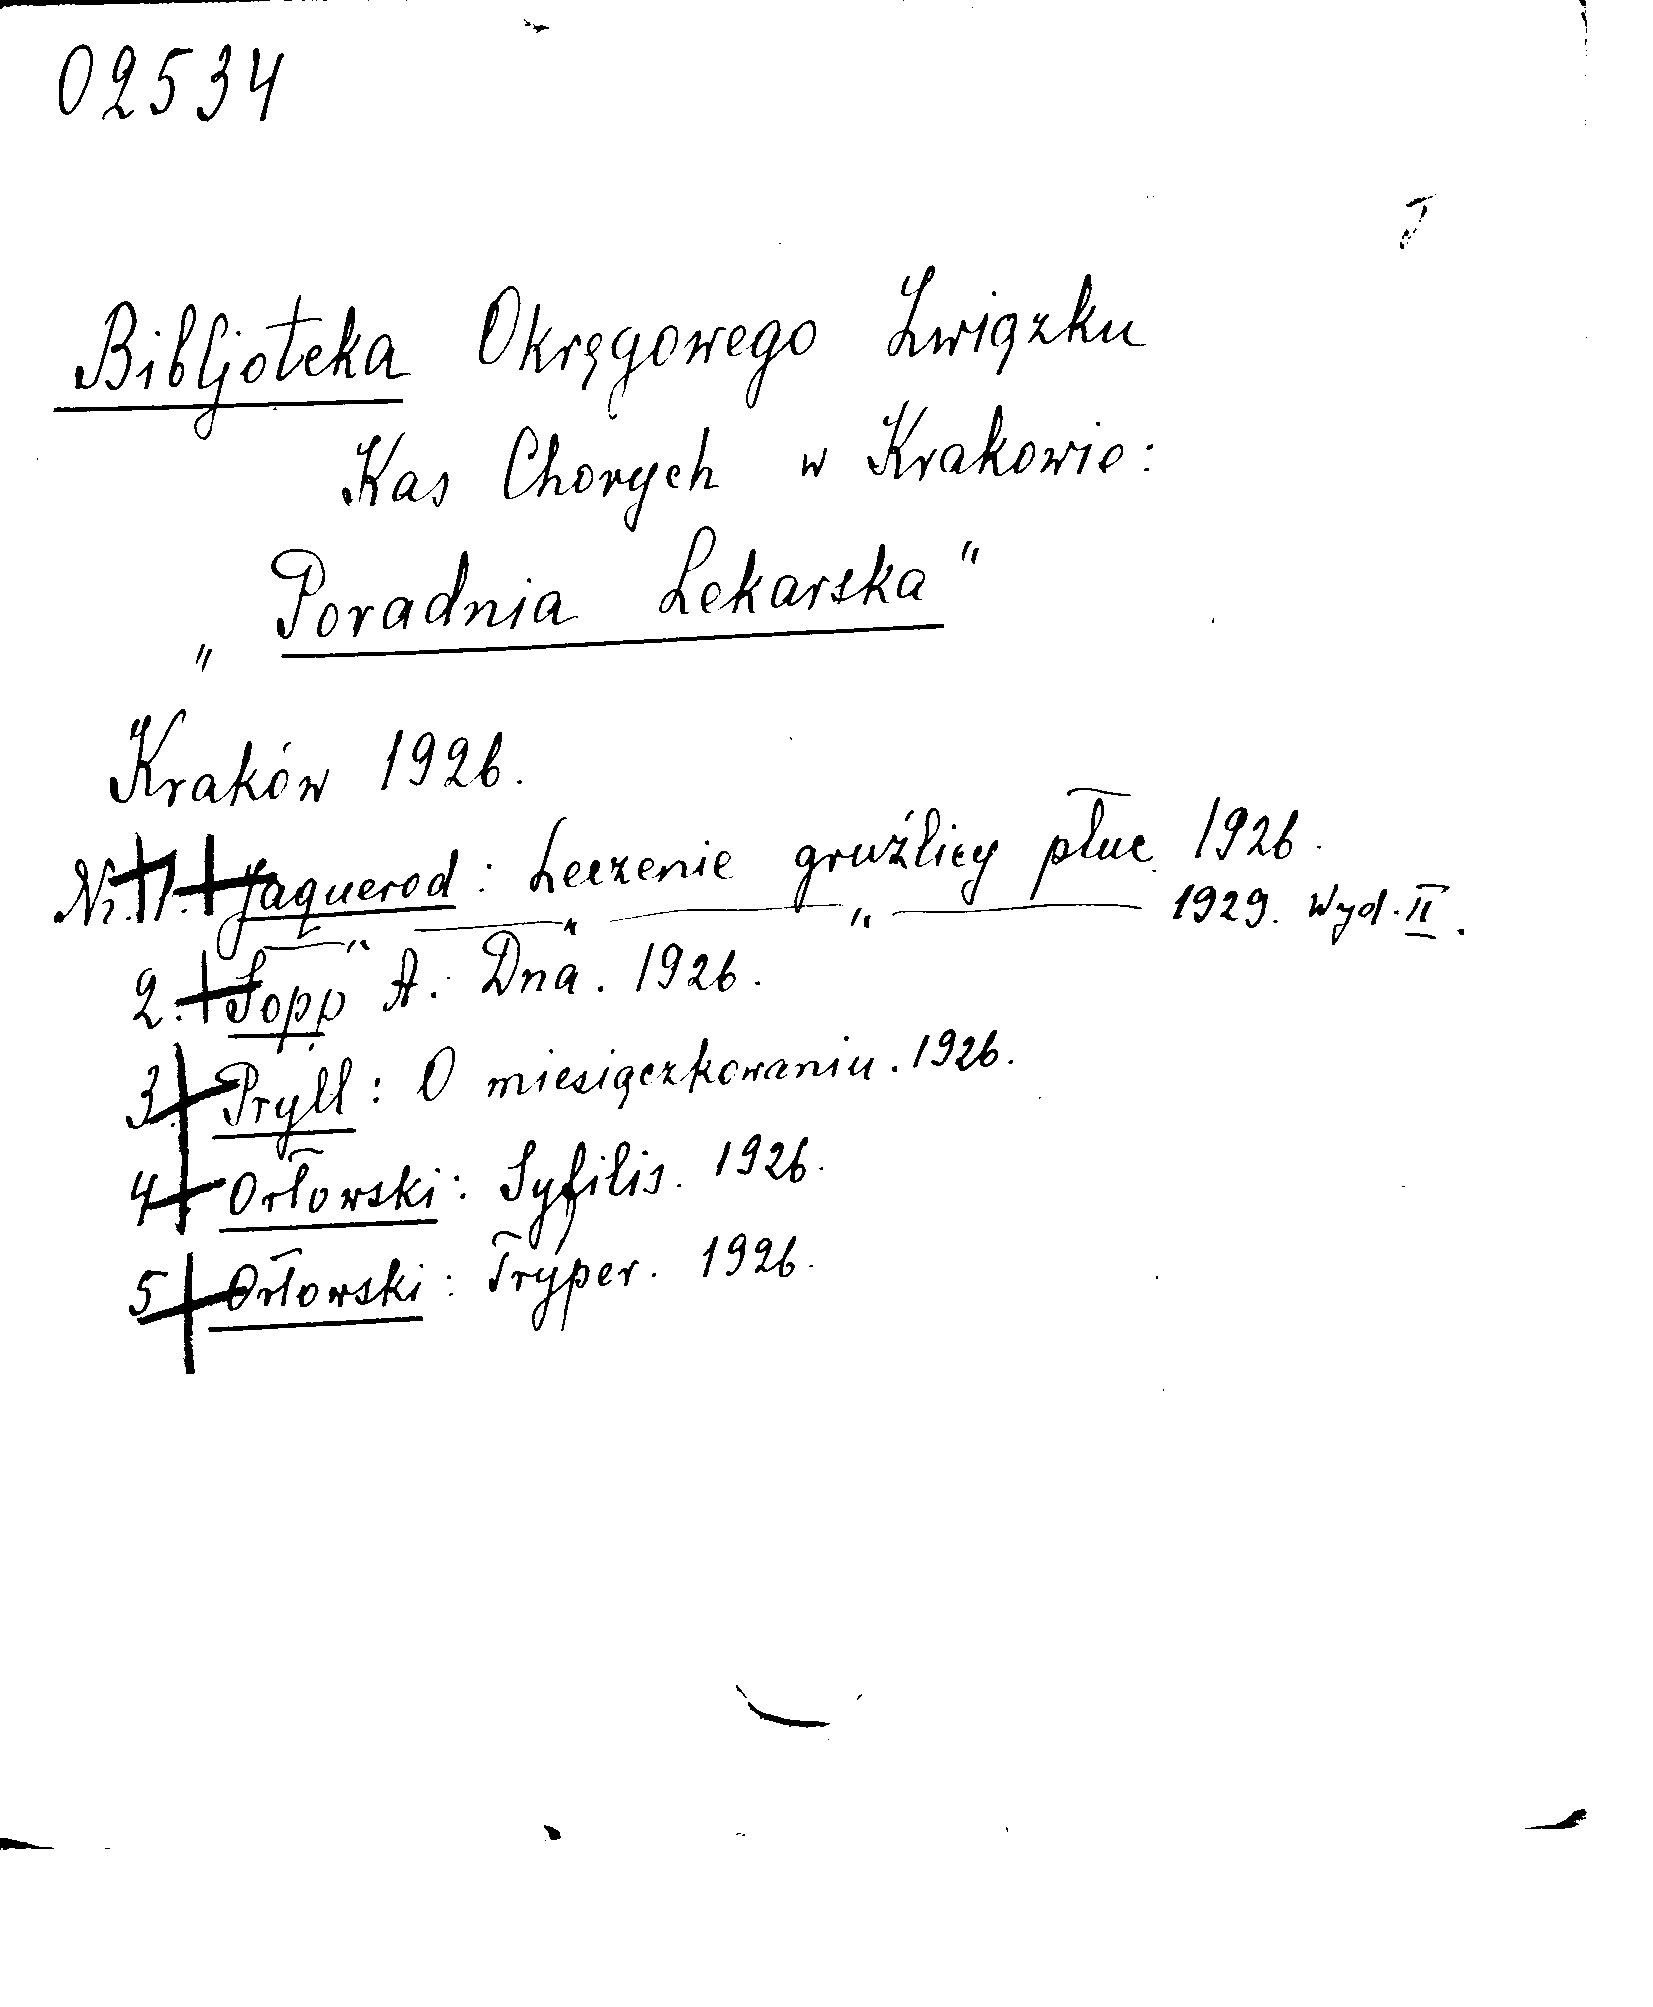 02534
I
Bibljoteka Okręgowego Związku
Kas Chorych w Krakowie:
„Poradnia Lekarska"
Kraków 1926.
Nr. 1. Jaquerod: Leczenie gruźlicy płuc 1926.
" " " 1929. Wyd. II.
2. Sopp A. Dna. 1926.
3. Pryll: O miesiączkowaniu. 1926.
4. Orłowski: Syfilis. 1926.
5 Orłowski: Tryper. 1926.